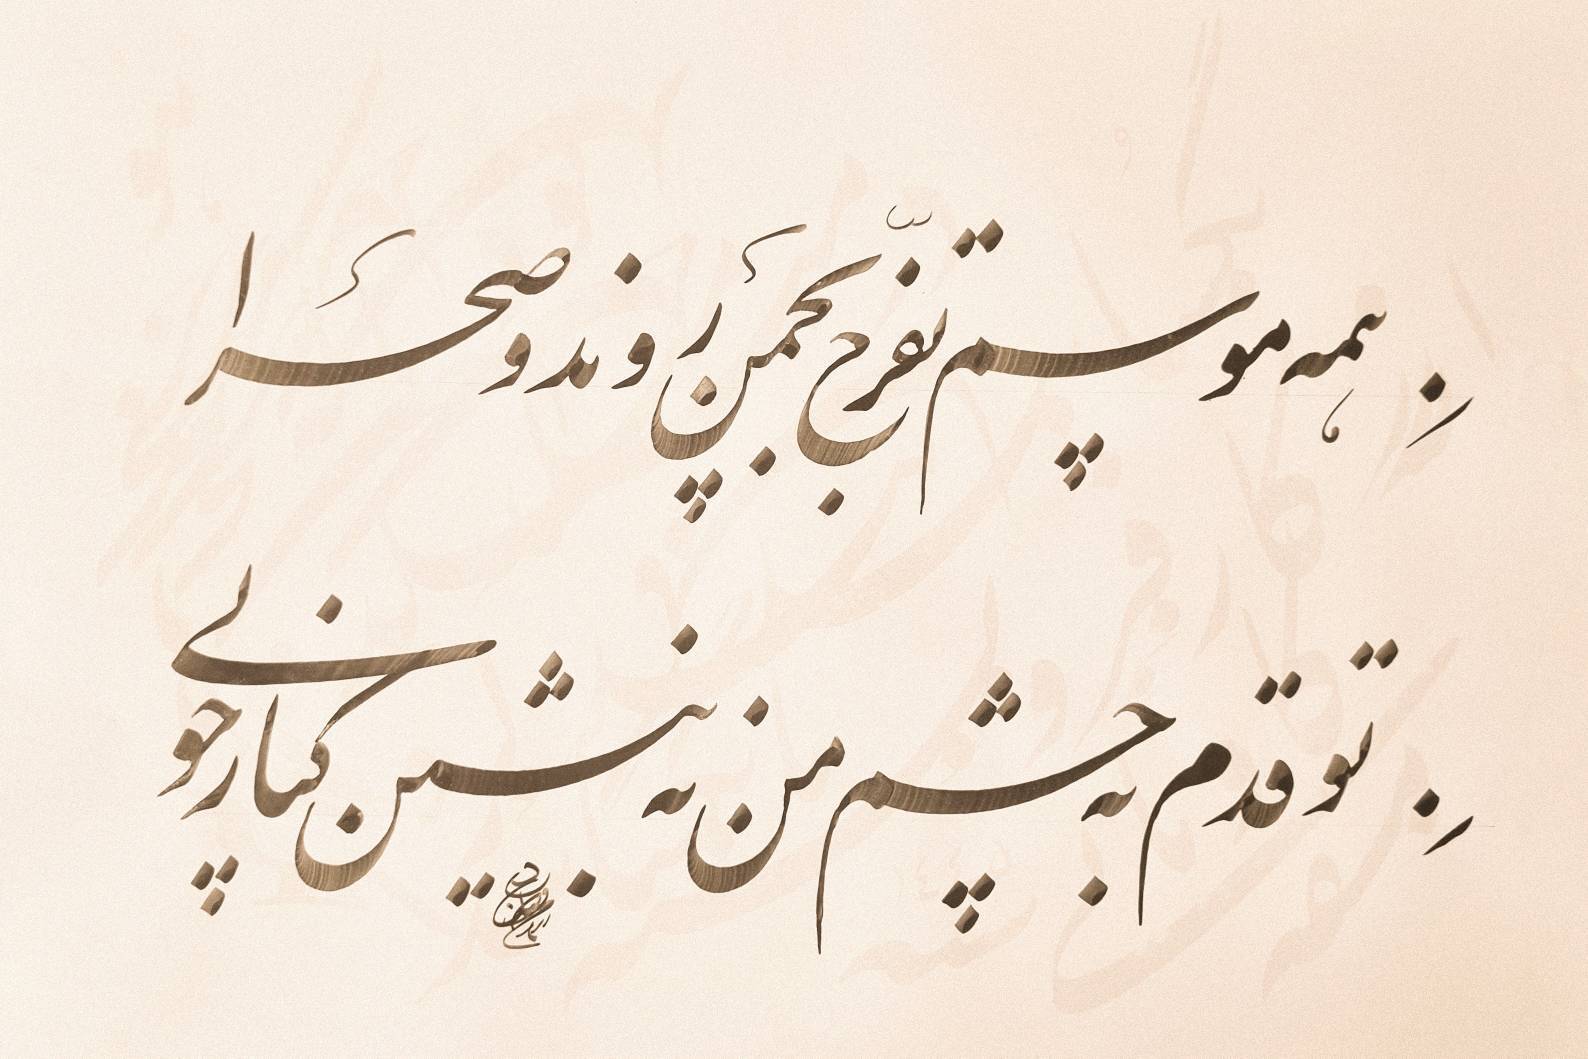 همه موسم تفرّج بچمن روند و صحرا
تو قدم به چشم من نه بنشین کنار جویی